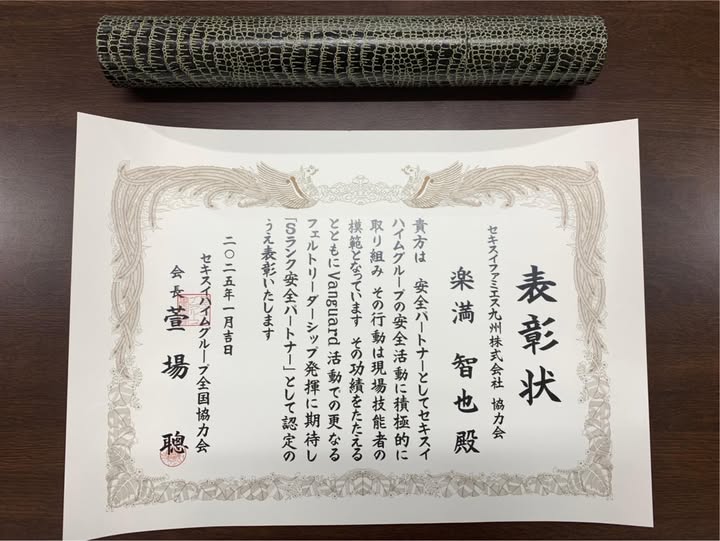 表彰状
セキスイファミエス九州株式会社 協力会
楽満 智也 殿
貴方は 安全パートナーとしてセキスイ
ハイムグループの安全活動に積極的に
取り組み その行動は現場技能者の
模範となっています その功績をたたえる
とともにVanguard活動での更なる
フェルトリーダーシップ発揮に期待し
「Sランク安全パートナー」として認定の
うえ表彰いたします
二〇二五年一月吉日
セキスイハイムグループ全国協力会
会長 萱場 聰